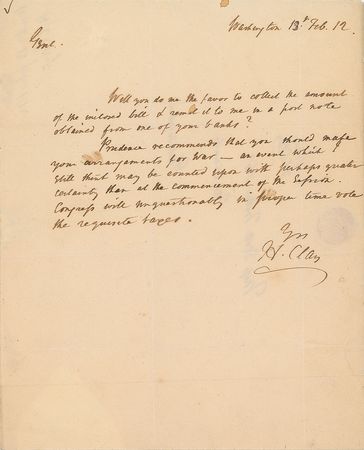 Washington 13 Feb. 12.
Gent.
Will you do me the favor to collect the amount
of the inclosed bill & remit it to me in a post note
obtained from one of your banks?
Prudence recommends that you should make
your arrangements for War — an event which I
still think may be counted upon with perhaps greater
certainty than at the commencement of the Session.
Congress will unquestionably in proper time vote
the requisite taxes.
Yrs
H. Clay